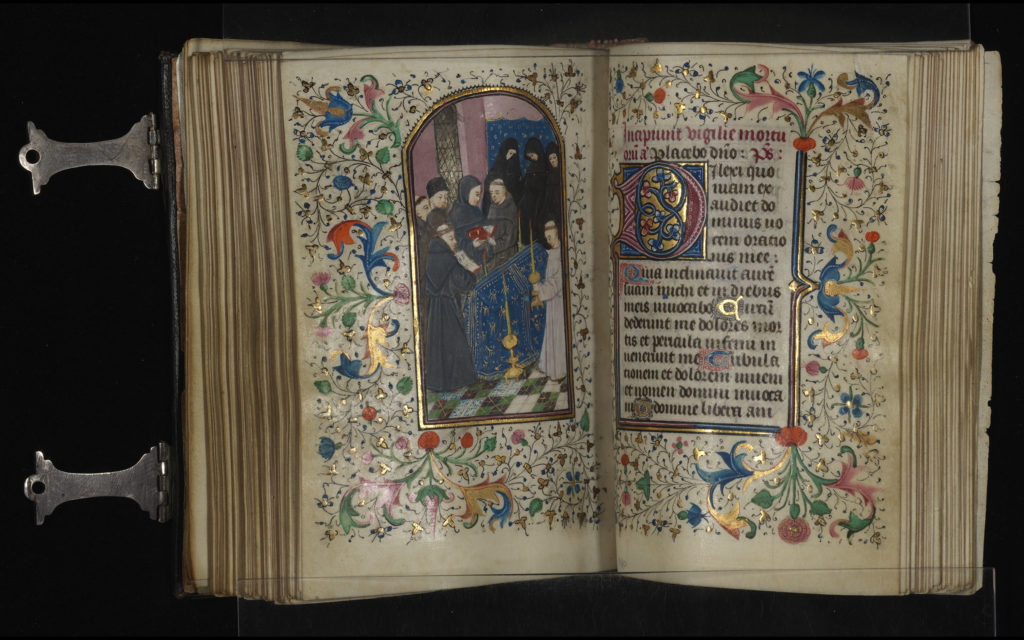 Incipiunt vigilie mortu
oru͂ a͂ Placebo dn͂o: p͂s:
Dilexi quo
niam ex
audiet do
minus uo
cem oratio
nis mee:
Quia inclinauit aure͂
suam michi et in diebus
meis inuocabo Circu͂
dederunt me dolores mor
tis et pericula inferni in
uenerunt me Tribula
tionem et dolorem inueni
et nomen domini inuoca
ui O domine libera ani